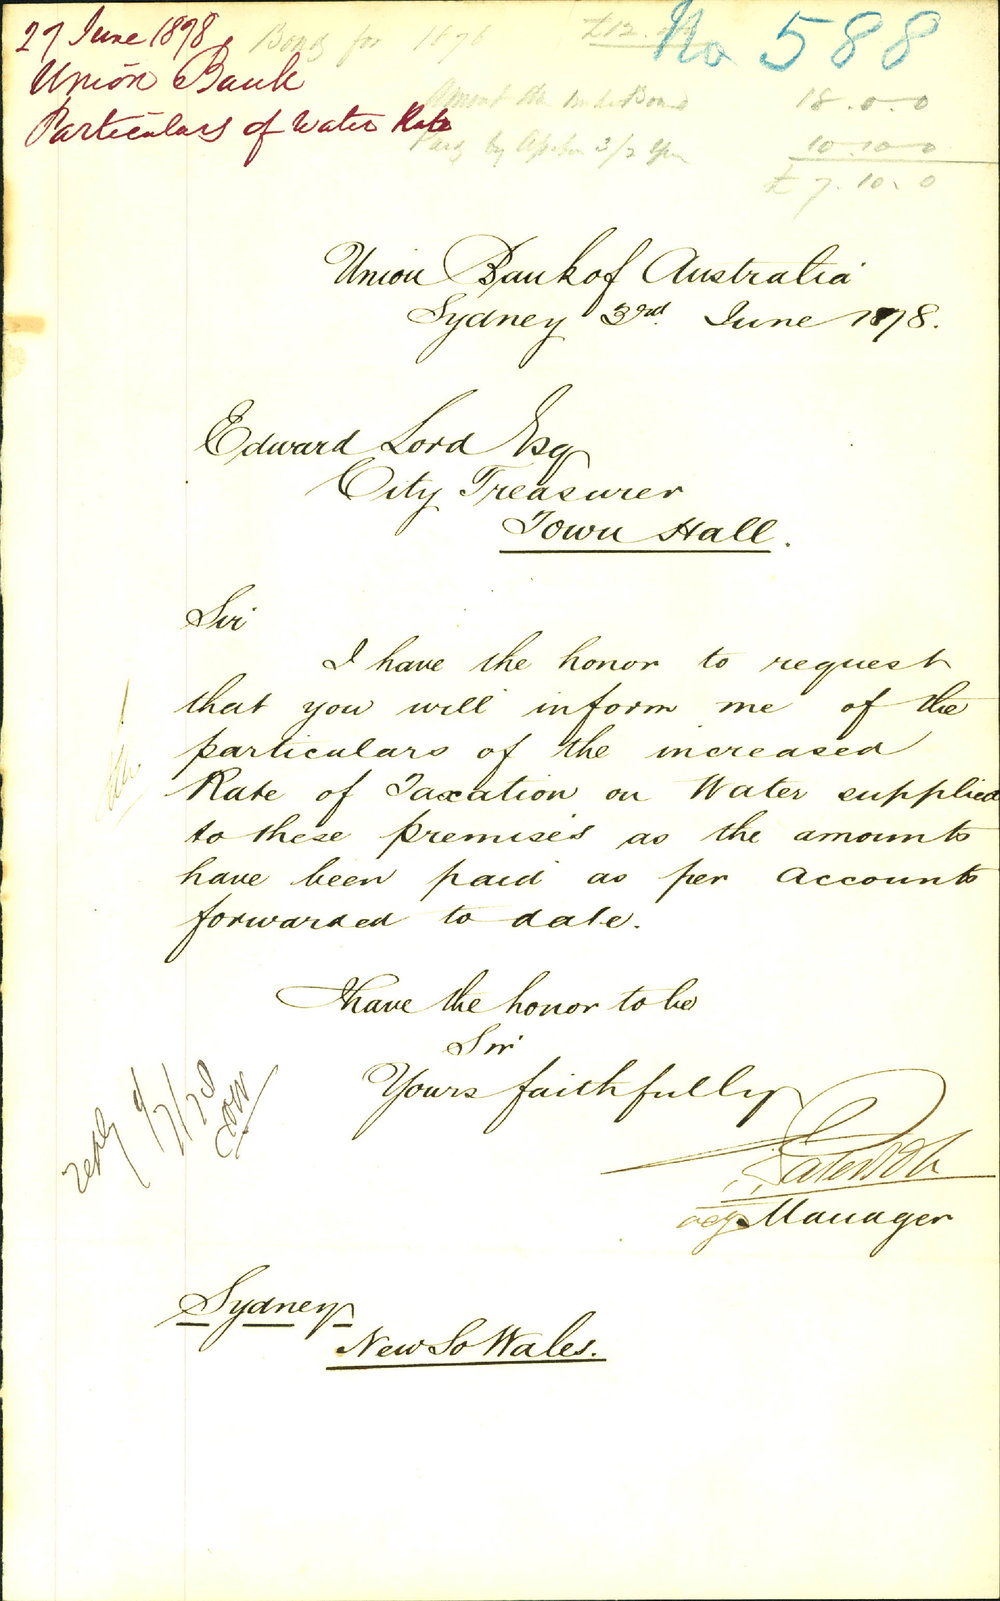 27 June 1878
Union Bank
Particulars of Water Rate
No 588
Bond for 1876 £12.
18.0.0
Paid by 3/2
10.10.0
£7.10.0
Union Bank of Australia
Sydney 3rd June 1878.
Edward Lord Esq
City Treasurer
Town Hall.
Sir
I have the honor to request
that you will inform me of the
particulars of the increased
Rate of Taxation on Water supplied
to these premises as the amounts
have been paid as per accounts
forwarded to date.
I have the honor to be
Sir
Yours faithfully
Manager
reply 9/7/78
Sydney
New So Wales.